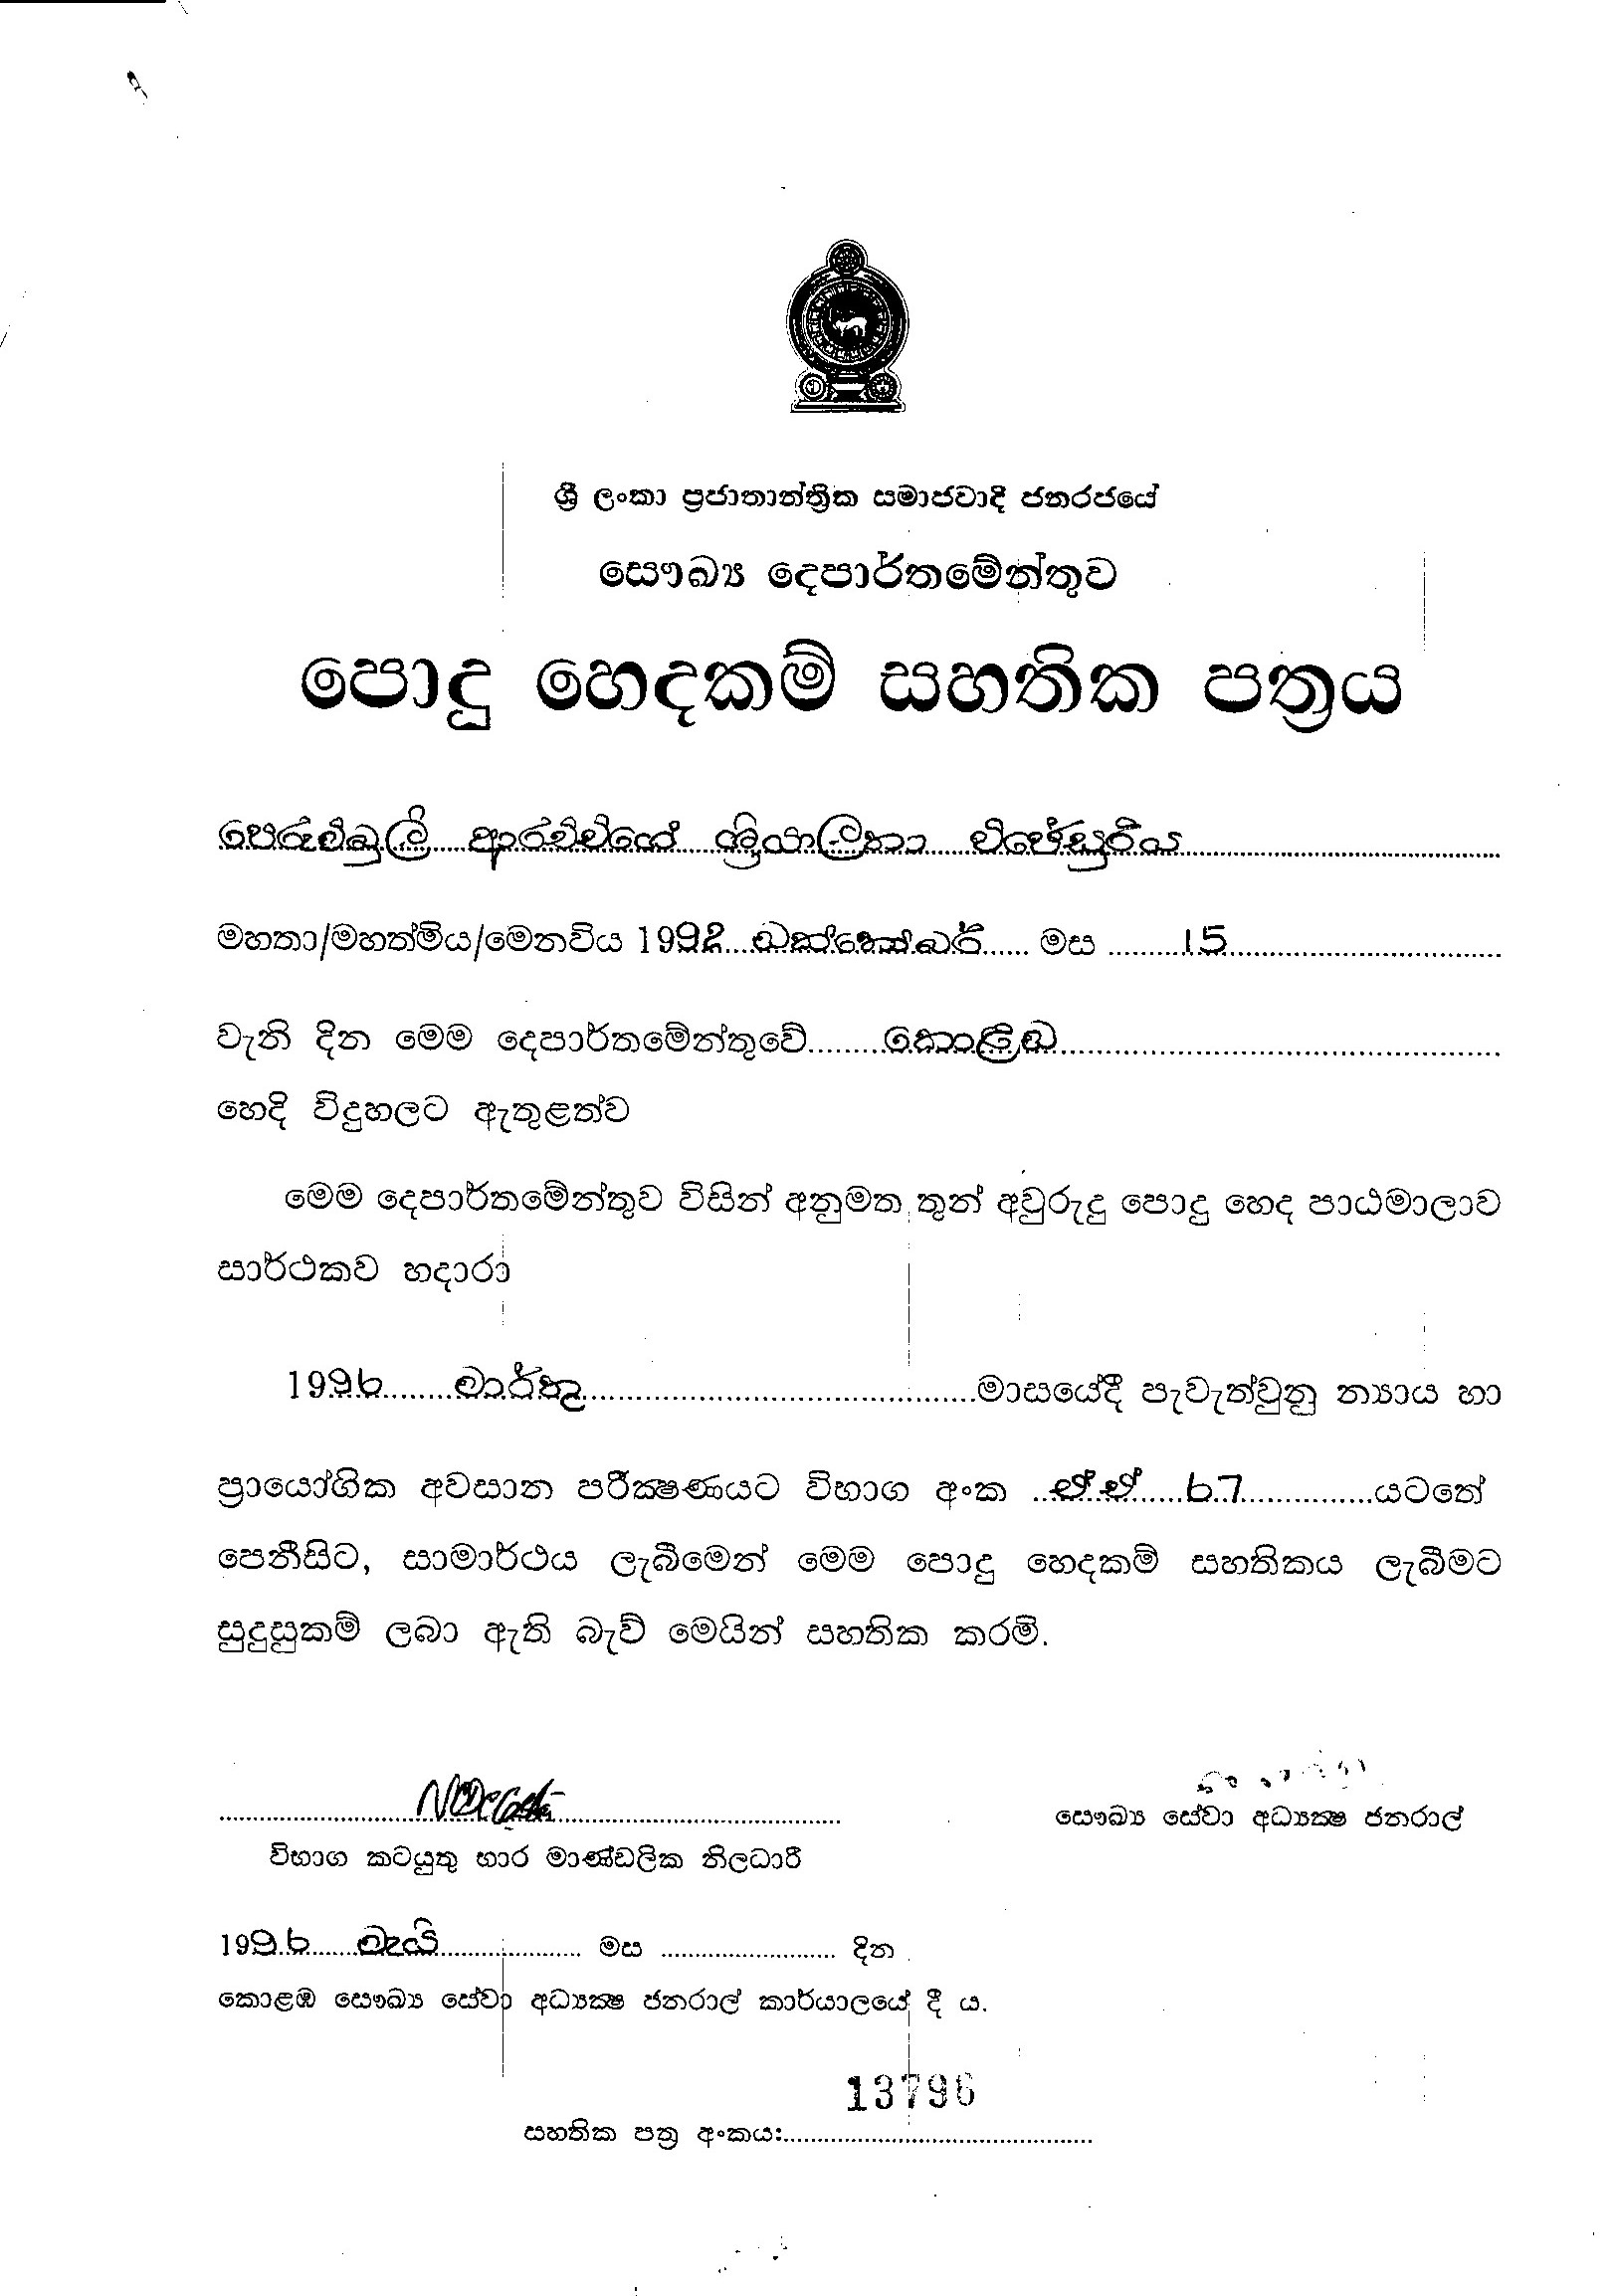 ශ්‍රී ලංකා ප්‍රජාතාන්ත්‍රික සමාජවාදි ජනරජයේ
සෞඛ්‍ය දෙපාර්තමේන්තුව
පොදු හෙදකම් සහතික පත්‍රය
ආරච්චිගේ ශ්‍රියාලතා විජේසූරිය
මහතා/මහත්මිය/මෙනවිය 1992 ඔක්තෝබර් මස 15
වැනි දින මෙම දෙපාර්තමේන්තුවේ කොළඹ
හෙදි විදුහලට ඇතුළත්ව
මෙම දෙපාර්තමේන්තුව විසින් අනුමත තුන් අවුරුදු පොදු හෙද පාඨමාලාව
සාර්ථකව හදාරා
1996 මාර්තු මාසයේදී පැවැත්වුනු න්‍යාය හා
ප්‍රායෝගික අවසාන පරීක්‍ෂණයට විභාග අංක 67 යටතේ
පෙනීසිට, සාමාර්ථය ලැබීමෙන් මෙම පොදු හෙදකම් සහතිකය ලැබීමට
සුදුසුකම් ලබා ඇති බැව් මෙයින් සහතික කරමි.
සෞඛ්‍ය සේවා අධ්‍යක්‍ෂ ජනරාල්
විභාග කටයුතු භාර මාණ්ඩලික නිලධාරී
1996 මැයි මස දින
කොළඹ සෞඛ්‍ය සේවා අධ්‍යක්‍ෂ ජනරාල් කාර්යාලයේ දී ය.
13796
සහතික පත්‍ර අංකය: